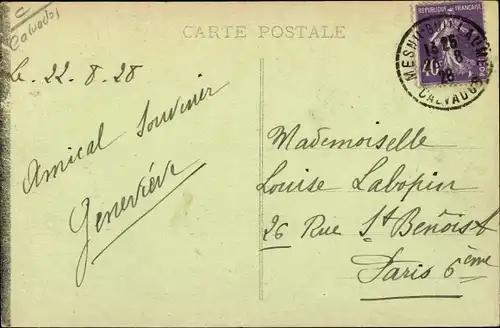 C
Calvados
CARTE POSTALE
REPUBLIQUE FRANÇAISE
40c
MESNIL-GUILLAUME
13 25
8
28
CALVADOS
Le 22.8.28
Amical Souvenir
Geneviève
Mademoiselle
Louise Labopin
26 Rue St Benoist
Paris 6ème